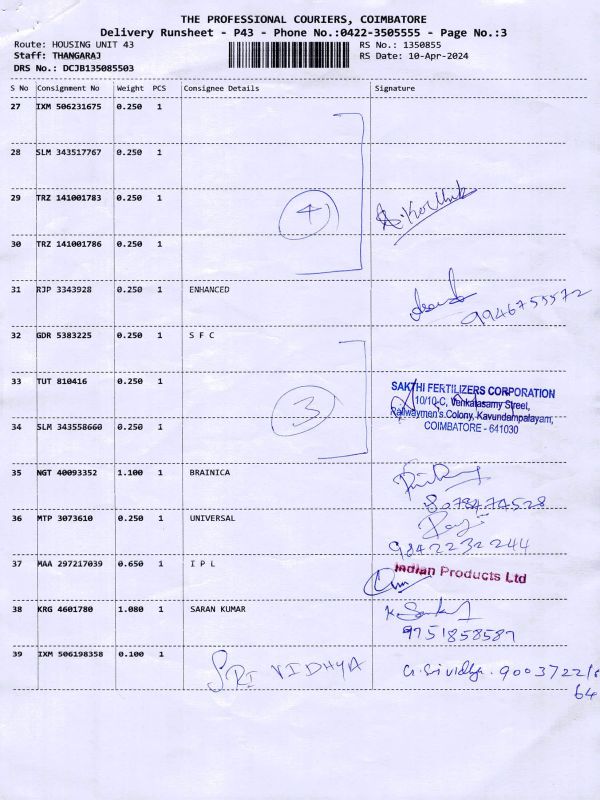 THE PROFESSIONAL COURIERS, COIMBATORE
Delivery Runsheet - P43 - Phone No.:0422-3505555 - Page No.:3
Route: HOUSING UNIT 43
RS No.: 1350855
Staff: THANGARAJ
RS Date: 10-Apr-2024
DRS No.: DCJB135085503
S No Consignment No Weight PCS Consignee Details Signature
27 IXM 506231675 0.250 1
28 SLM 343517767 0.250 1
29 TRZ 141001783 0.250 1
4
30 TRZ 141001786 0.250 1
31 RJP 3343928 0.250 1 ENHANCED
9946755572
32 GDR 5383225 0.250 1 S F C
33 TUT 810416 0.250 1
SAKTHI FERTILIZERS CORPORATION
10/10-C, Venkatasamy Street,
Railwaymen's Colony, Kavundampalayam,
COIMBATORE - 641030
3
34 SLM 343558660 0.250 1
35 NGT 40093352 1.100 1 BRAINICA
8078474528
36 MTP 3073610 0.250 1 UNIVERSAL
9842232244
37 MAA 297217039 0.650 1 I P L
Indian Products Ltd
38 KRG 4601780 1.080 1 SARAN KUMAR
9751858587
39 IXM 506198358 0.100 1 SRI VIDHYA G.Srividhya.
64